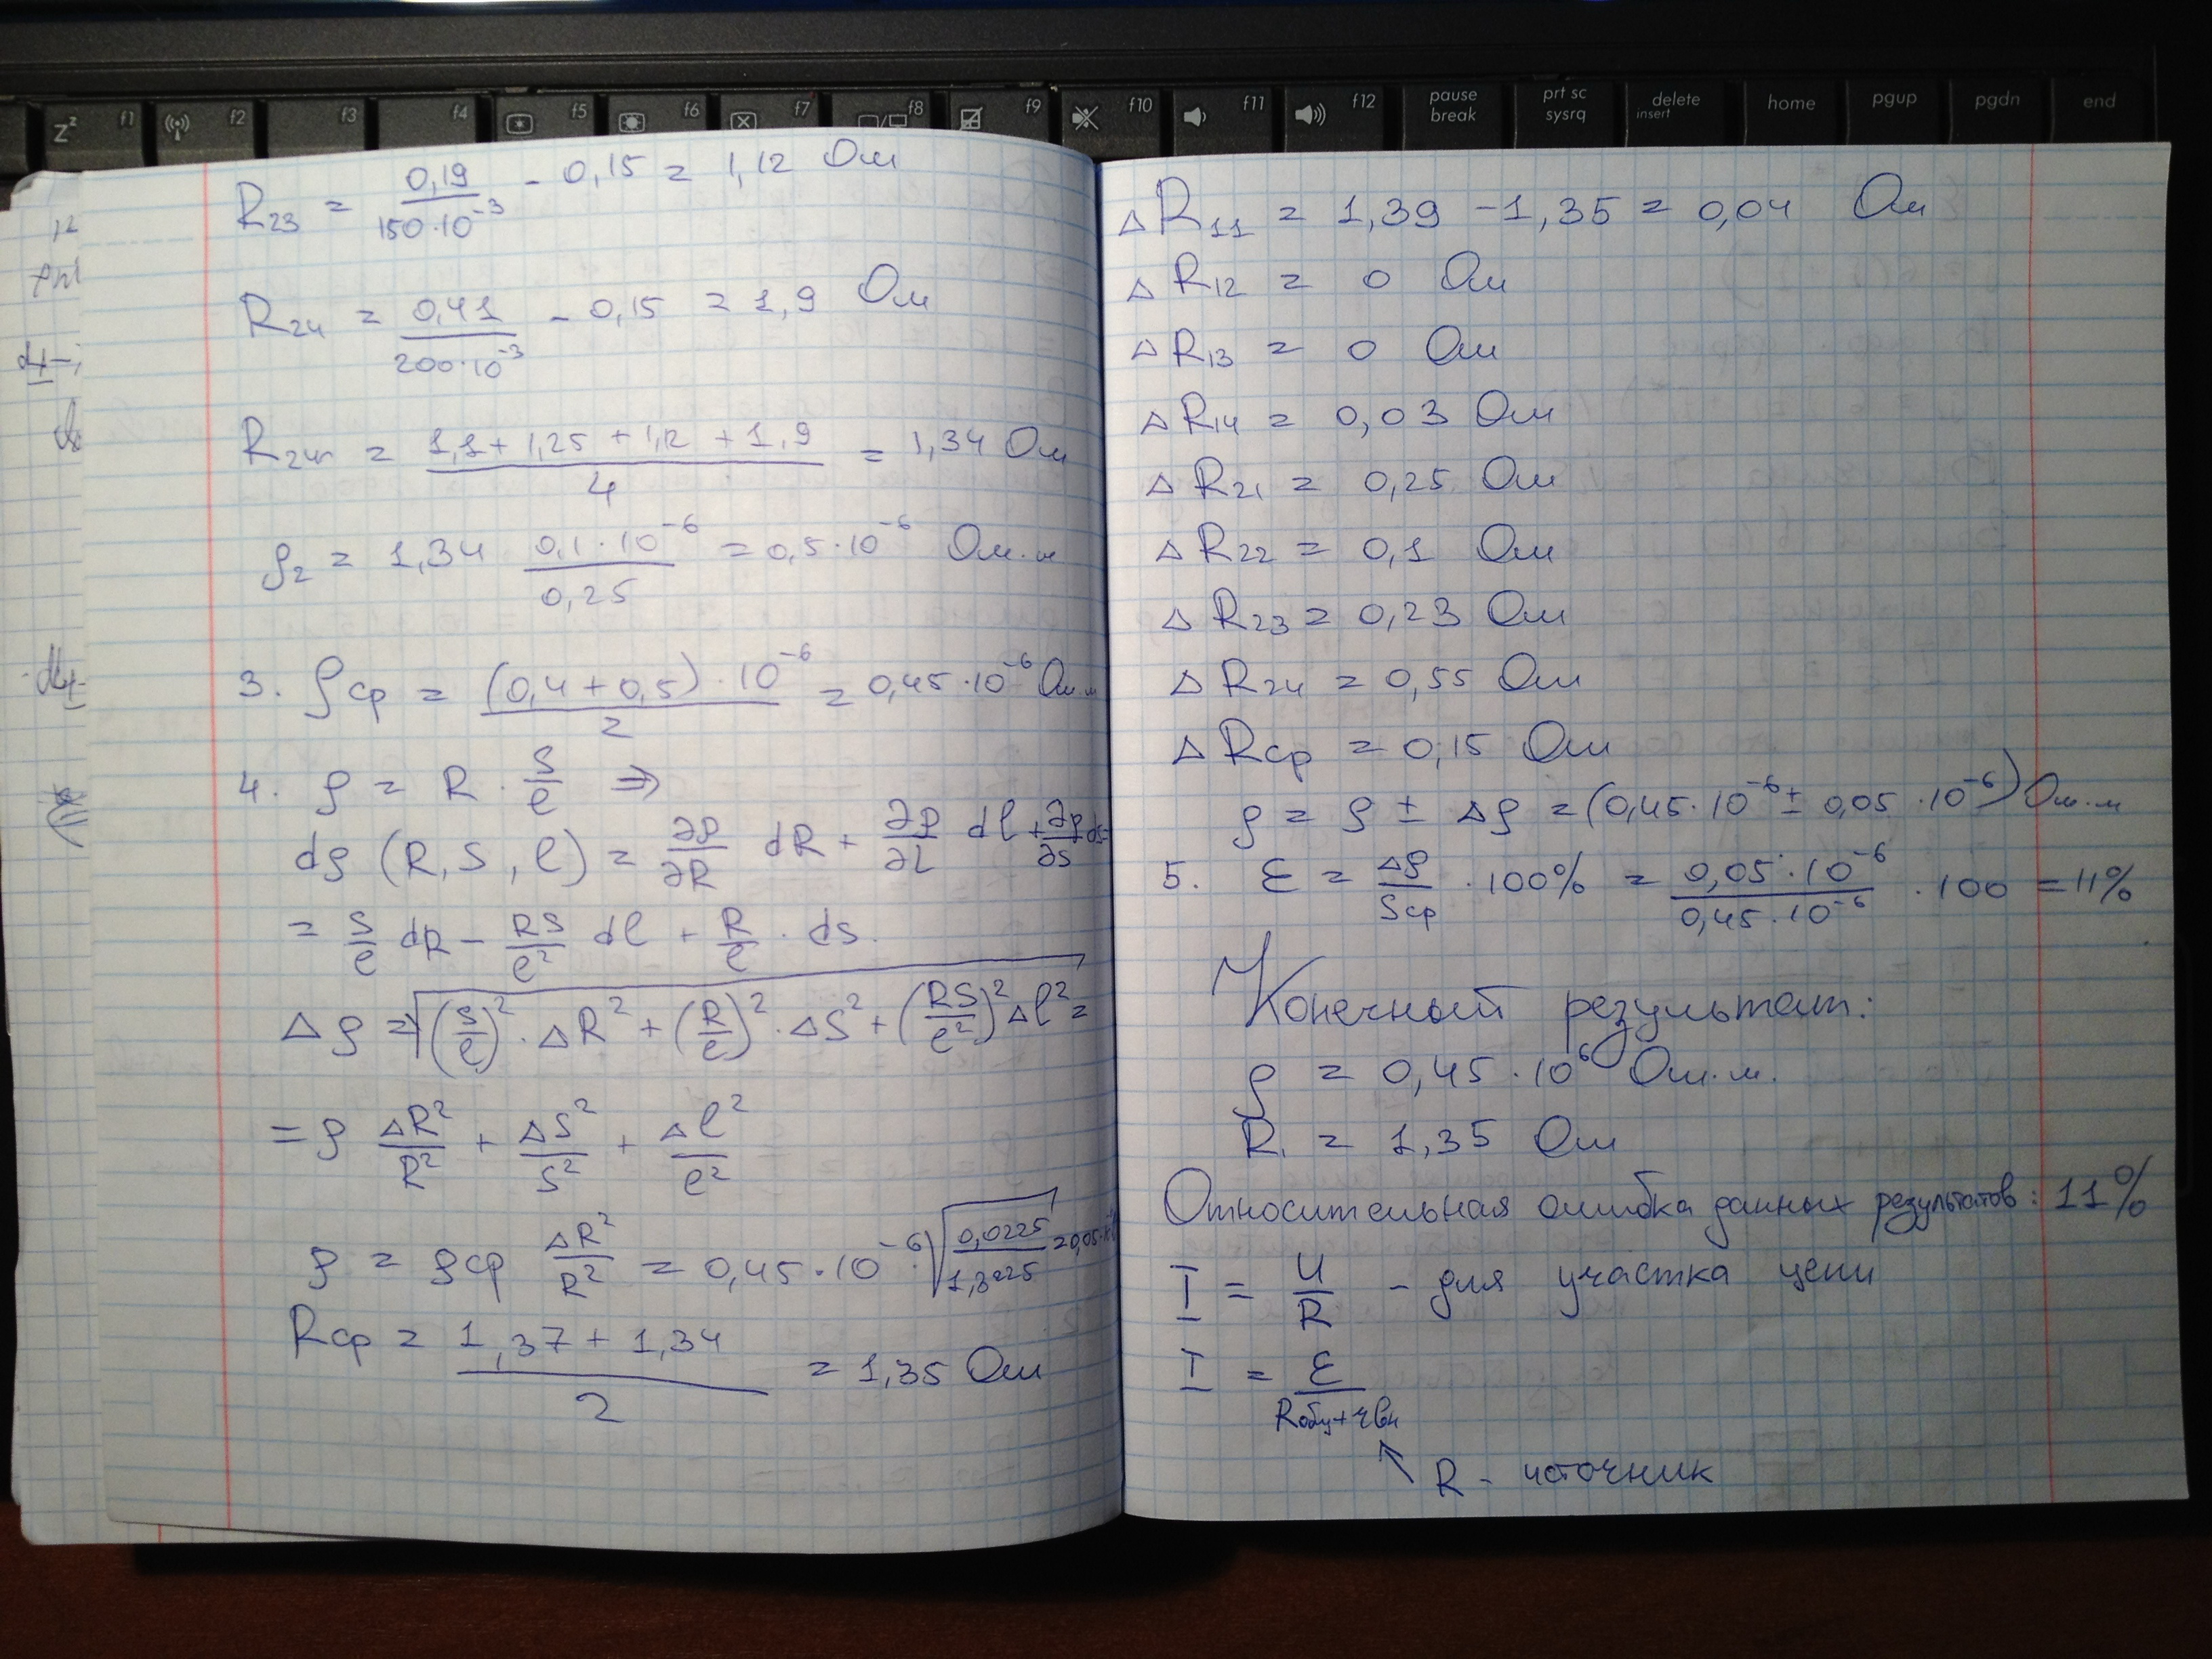 f1 f2 f3 f4 f5 f6 f7 f8 f9 f10 f11 f12 pause break prt sc sysrq delete insert home pgup pgdn end
R₂₃ = 0,19 / 150·10⁻³ - 0,15 = 1,12 Ом
R₂₄ = 0,41 / 200·10⁻³ - 0,15 = 1,9 Ом
= (1,1 + 1,25 + 1,12 + 1,9) / 4 = 1,34 Ом
ρ₂ = 1,34 0,1·10⁻⁶ / 0,25 = 0,5·10⁻⁶ Ом·м
3. ρср = (0,4+0,5)·10⁻⁶ / 2 = 0,45·10⁻⁶ Ом·м
4. ρ = R · S/l ⇒
dρ (R, S, l) = ∂ρ/∂R dR + ∂ρ/∂L dl + ∂ρ/∂S dS =
= S/l dR - RS/l² dl + R/l · dS.
Δρ = √((S/l)² · ΔR² + (R/l)² · ΔS² + (RS/l²)² Δl²) =
= ρ ΔR²/R² + ΔS²/S² + Δl²/l²
ρ = ρср ΔR²/R² = 0,45·10⁻⁶ · √(0,0225 / 1,3225) = 0,05·10⁻⁶
Rср = (1,37 + 1,34) / 2 = 1,35 Ом
ΔR₁₁ = 1,39 - 1,35 = 0,04 Ом
ΔR₁₂ = 0 Ом
ΔR₁₃ = 0 Ом
ΔR₁₄ = 0,03 Ом
ΔR₂₁ = 0,25 Ом
ΔR₂₂ = 0,1 Ом
ΔR₂₃ = 0,23 Ом
ΔR₂₄ = 0,55 Ом
ΔRср = 0,15 Ом
ρ = ρ ± Δρ = (0,45·10⁻⁶ ± 0,05·10⁻⁶) Ом·м
5. ε = Δρ/ρср · 100% = 0,05·10⁻⁶ / 0,45·10⁻⁶ · 100 = 11%
Конечный результат:
ρ = 0,45·10⁶ Ом·м.
R. = 1,35 Ом
Относительная ошибка данных результатов: 11%
I = U/R - для участка цепи
I = ε / Rобщ+rвн
R - источник